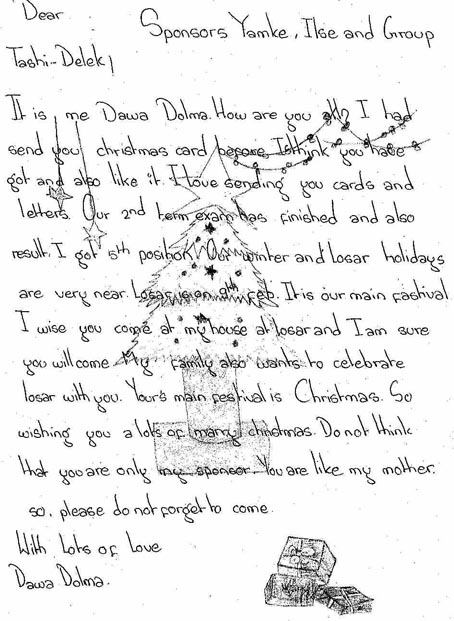 Dear
Sponsors Yamke, Ilse and Group
Tashi-Delek!
It is me Dawa Dolma. How are you all? I had
send you christmas card before. I think you have
got and also like it. I love sending you cards and
letters. Our 2nd term exam has finished and also
result. I got 5th position. Our winter and losar holidays
are very near. Losar is on 9th Feb. It is our main fastival
I wise you come at my house at losar and I am sure
you will come. My family also wants to celebrate
losar with you. Your's main festival is Christmas. So
wishing you a lots of marry christmas. Do not think
that you are only my sponsor. You are like my mother.
so, please do not forget to come.
With Lots of Love
Dawa Dolma.